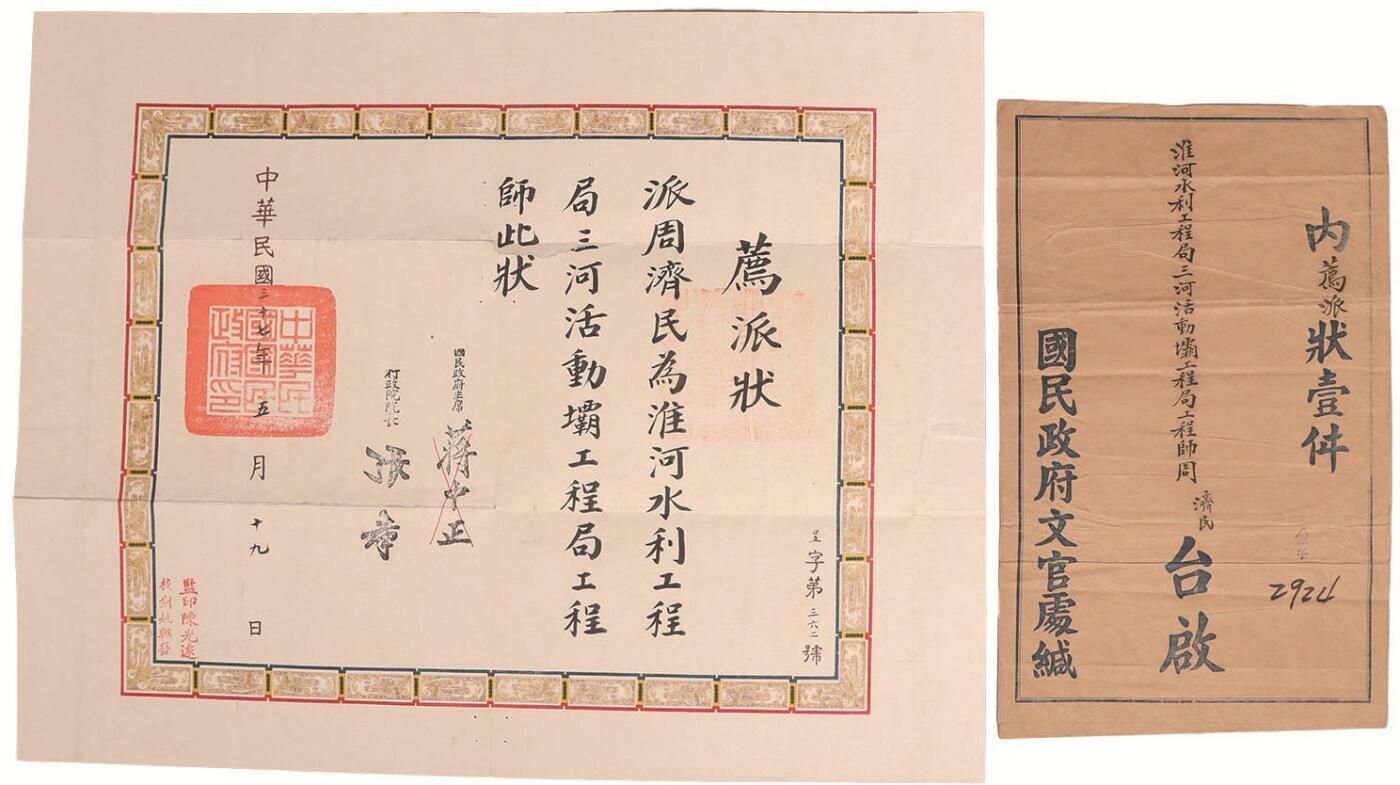 薦派狀
派周濟民為淮河水利工程
局三河活動壩工程局工程
師此狀
國民政府主席 蔣中正
行政院院長 張羣
中華民國三十七年五月十九日
中華民國國民政府印
監印陳光遠
校對姚
呈字第三六二號
內薦派狀壹件
淮河水利工程局三河活動壩工程局工程師周濟民台啟
國民政府文官處緘
2924